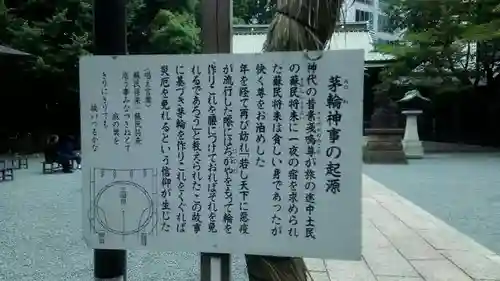 茅輪神事の起源
神代の昔素戔嗚尊が旅の途中土民
の蘇民将来に一夜の宿を求められ
た蘇民将来は貧しい身であったが
快く尊をお泊めした
年を経て再び来訪「若し天下に悪疫
が流行した際にはちがやをもって輪を
作りこれを腰につけておればそれを免
れるであろう」と教えられたこの故事
に基づき茅輪を作りこれをくぐれば
災厄を免れるという信仰が生じた
(唱え言葉)
蘇民将来 蘇民将来